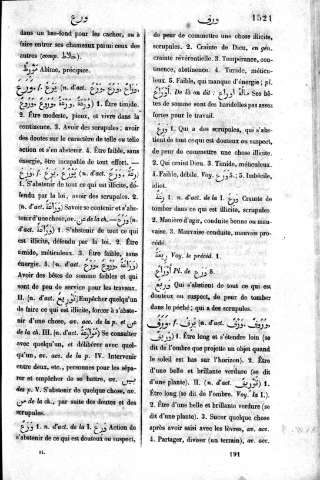 ورع
ورف
1521
dans un bas-fond pour les cacher, ou à
faire entrer ses chameaux parmi ceux des
autres (comp. خلاط).
Abîme, précipice.
1. Être timide.
2. Être modeste, pieux, et vivre dans la
continence. 3. Avoir des scrupules; avoir
des doutes sur le caractère de telle ou telle
action et s'en abstenir. 4. Être faible, sans
énergie, être incapable de tout effort. —
1. S'abstenir de tout ce qui est illicite, dé-
fendu par la loi, avoir des scrupules. 2.
Savoir se contenir et s'abs-
tenir d'une chose, av. من de la ch. —
1. S'abstenir de tout ce qui
est illicite, défendu par la loi. 2. Être
timide, méticuleux. 3. Être faible, sans
énergie.
Avoir des bêtes de somme faibles et qui
sont de peu de service ou d'utilité. —
II. Empêcher quelqu'un
de faire ce qui est illicite, forcer à s'abs-
tenir d'une chose, av. acc. de la p. et من
de la ch. III. Se consulter
avec quelqu'un, et délibérer avec quel-
qu'un, av. acc. de la p. IV. Intervenir
entre deux, etc., personnes pour les sépa-
rer et empêcher de se battre, av. بين
des p. V. S'abstenir de quelque chose, av.
من de la ch., par suite des doutes et des
scrupules.
1. n. d'act. de la I. Action de
s'abstenir de ce qui est douteux ou suspect,
II.
de peur de commettre une chose illicite,
scrupules. 2. Crainte de Dieu, en gén.
crainte révérentielle. 3. Tempérance, con-
tinence, abstinence. 4. Timide, méticu-
leux. 5. Faible, qui manque d'énergie; pl.
De là on dit : Ses bê-
tes de somme sont des haridelles pas assez
fortes pour le travail.
1. Qui a des scrupules, qui s'abs-
tient de tout ce qui est douteux ou suspect,
de peur de commettre une chose illicite.
2. Qui craint Dieu. 3. Timide, méticuleux.
4. Faible, débile. Voy. ورع 5.; 5. Imbécile,
idiot.
1. n. d'act. de la I. Crainte de
tomber dans ce qui est illicite, scrupules.
2. Manière d'agir, conduite bonne ou mau-
vaise. 3. Mauvaise conduite, mauvais pro-
cédé.
Voy. le précéd. 1.
Pl. de ورع 5.
Qui s'abstient de tout ce qui est
douteux ou suspect, de peur de tomber
dans le péché; qui a des scrupules.
1. Être long et s'étendre loin (se
dit de l'ombre que projette un objet quand
le soleil est bas sur l'horizon). 2. Être
d'une belle et brillante verdure (se dit
d'une plante). II. (n. d'act. توريف) 1.
Être long (se dit de l'ombre. Voy. la I.).
2. Être d'une belle et brillante verdure (se
dit d'une plante). 3. Sucer quelque chose
après avoir saisi avec les lèvres, av. acc.
4. Partager, diviser (un terrain), av. acc.
191